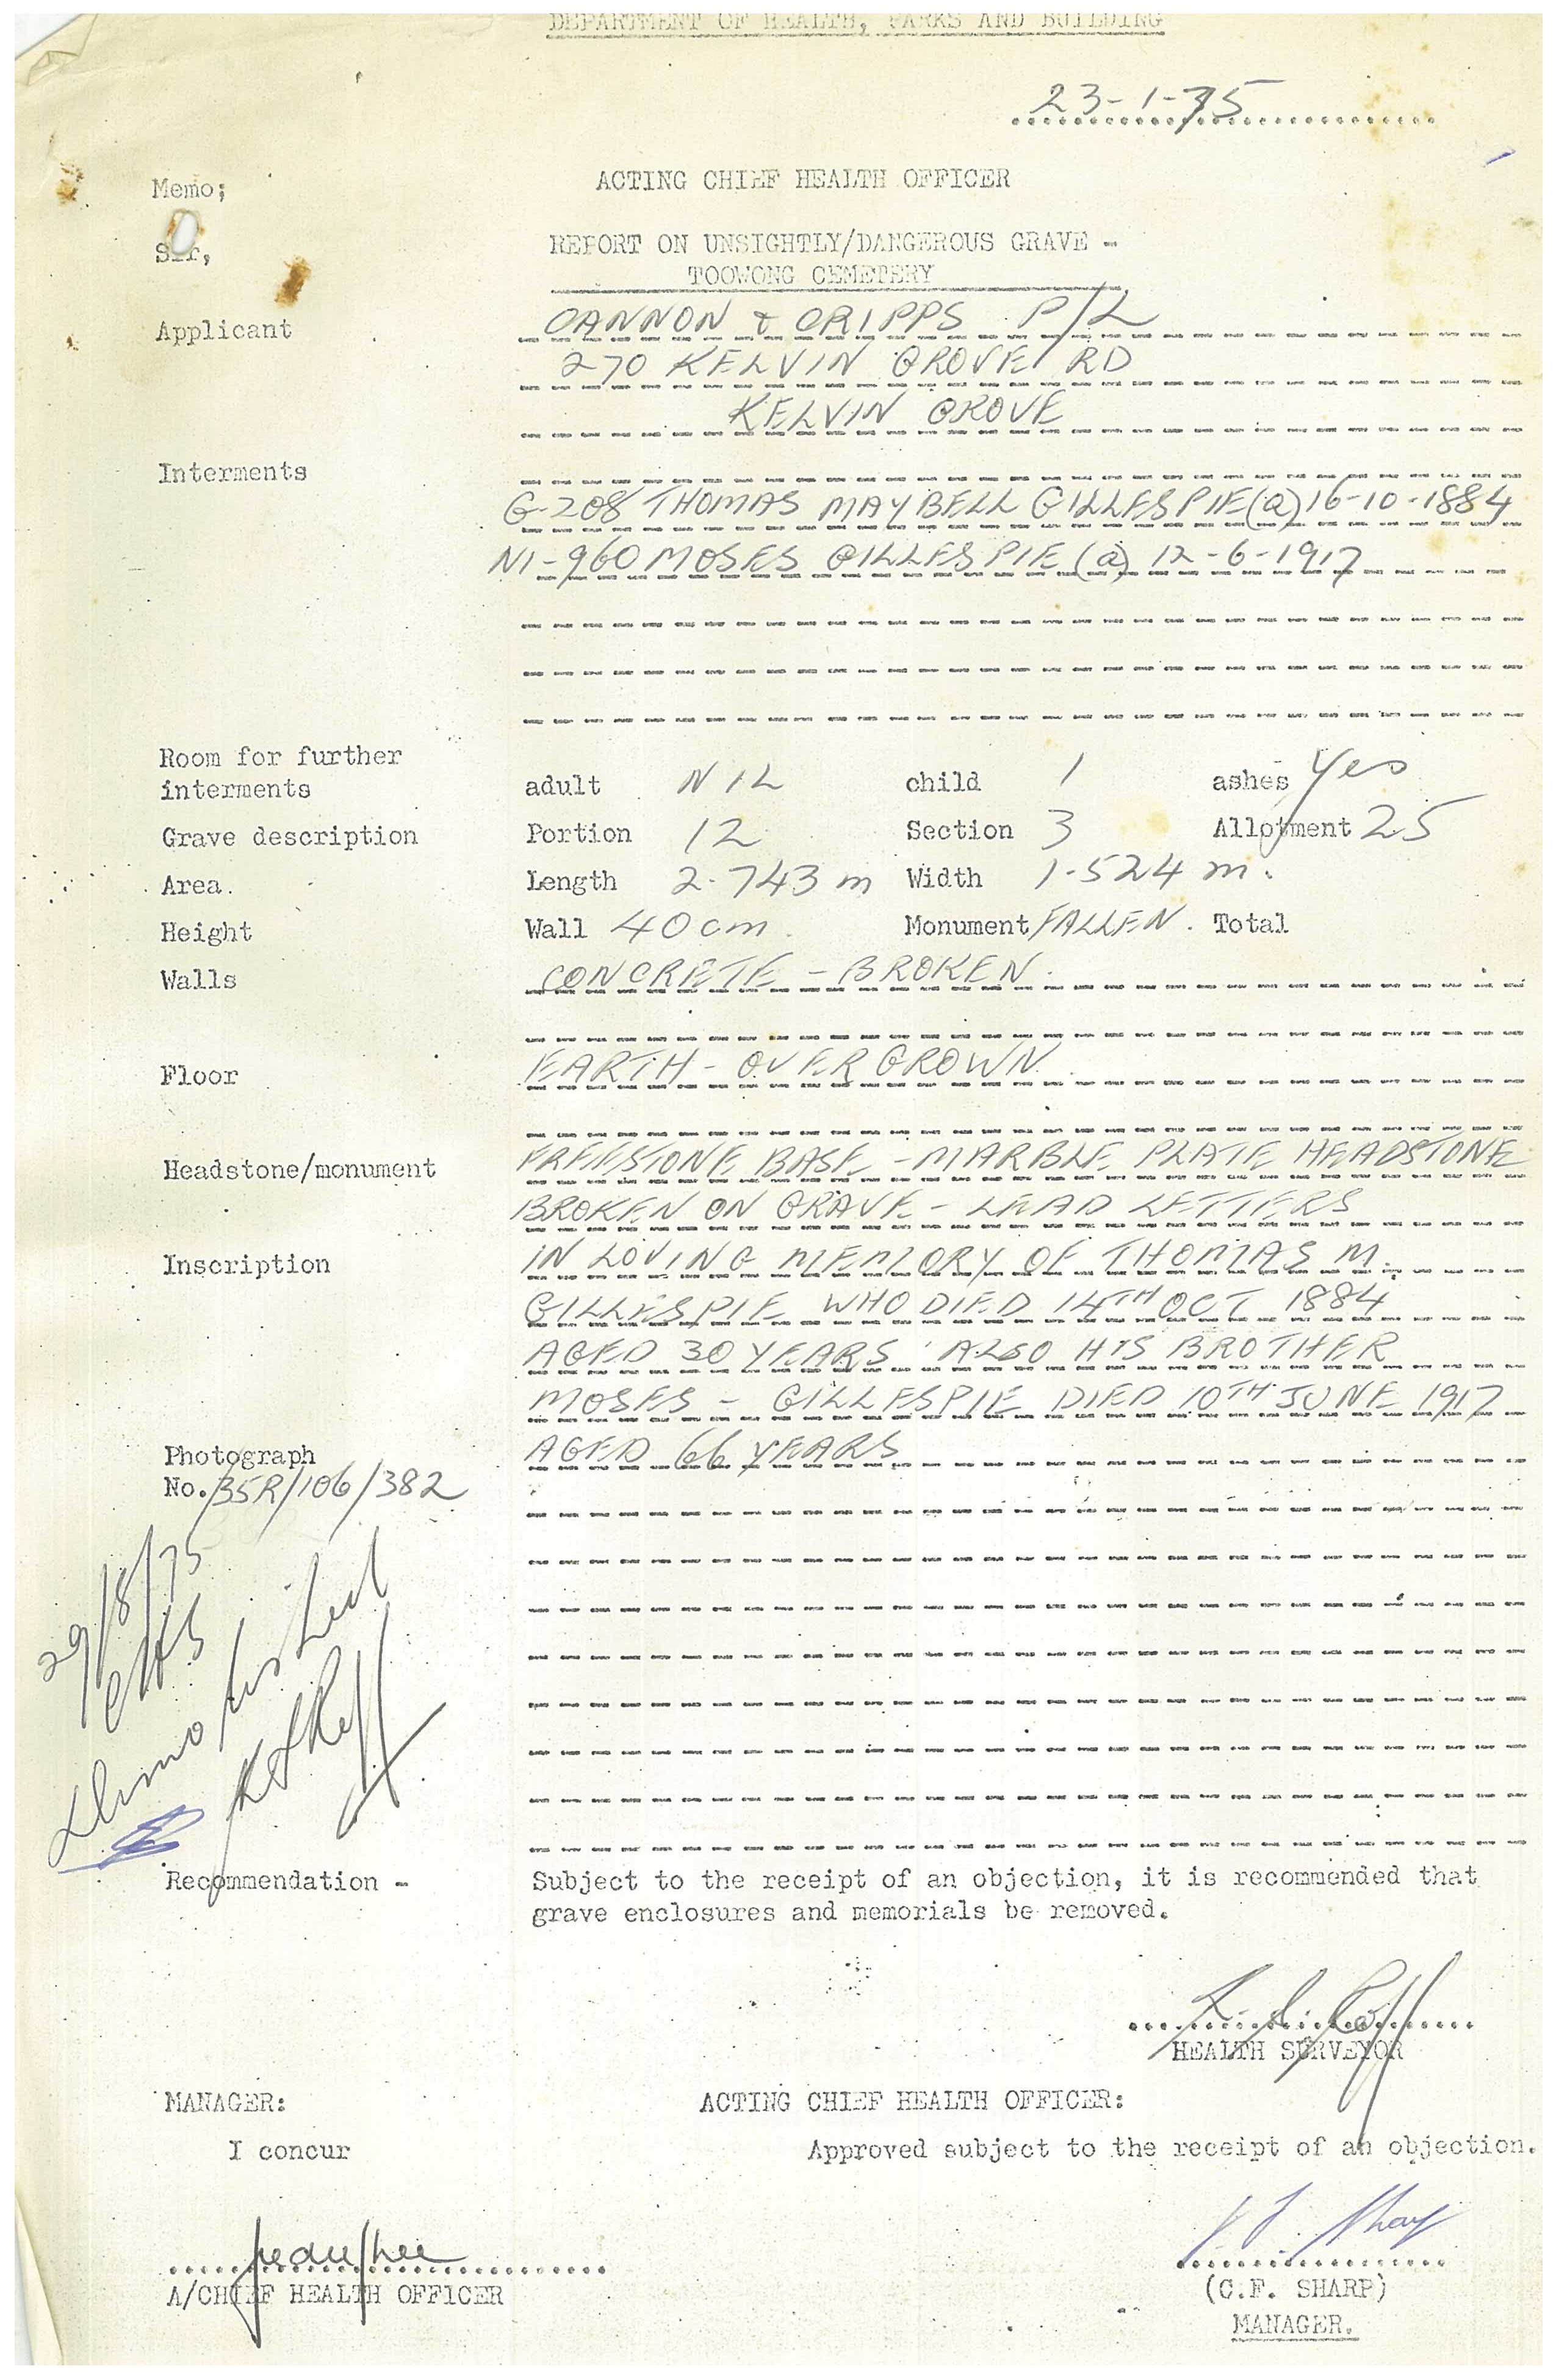 DEPARTMENT OF HEALTH, PARKS AND BUILDING
23-1-75
Memo; ACTING CHIEF HEALTH OFFICER
Sir, REPORT ON UNSIGHTLY/DANGEROUS GRAVE -
TOOWONG CEMETERY
Applicant CANNON & CRIPPS P/L
270 KELVIN GROVE RD
KELVIN GROVE
Interments
G-208 THOMAS MAYBELL GILLESPIE (a) 16-10-1884
N1-960 MOSES GILLESPIE (a) 12-6-1917
Room for further
interments adult NIL child 1 ashes Yes
Grave description Portion 12 Section 3 Allotment 25
Area. Length 2.743 m Width 1.524 m.
Height Wall 40 cm. Monument FALLEN. Total
Walls CONCRETE - BROKEN.
Floor EARTH - OVERGROWN.
Headstone/monument FREESTONE BASE - MARBLE PLATE HEADSTONE
BROKEN ON GRAVE - LEAD LETTERS
Inscription IN LOVING MEMORY OF THOMAS M.
GILLESPIE WHO DIED 14TH OCT 1884
AGED 30 YEARS ALSO HIS BROTHER
MOSES - GILLESPIE DIED 10TH JUNE 1917
Photograph AGED 66 YEARS
No. 35R/106/382
29/8/75
Recommendation - Subject to the receipt of an objection, it is recommended that
grave enclosures and memorials be removed.
HEALTH SURVEYOR
MANAGER: ACTING CHIEF HEALTH OFFICER:
I concur Approved subject to the receipt of an objection.
A/CHIEF HEALTH OFFICER (C.F. SHARP)
MANAGER.